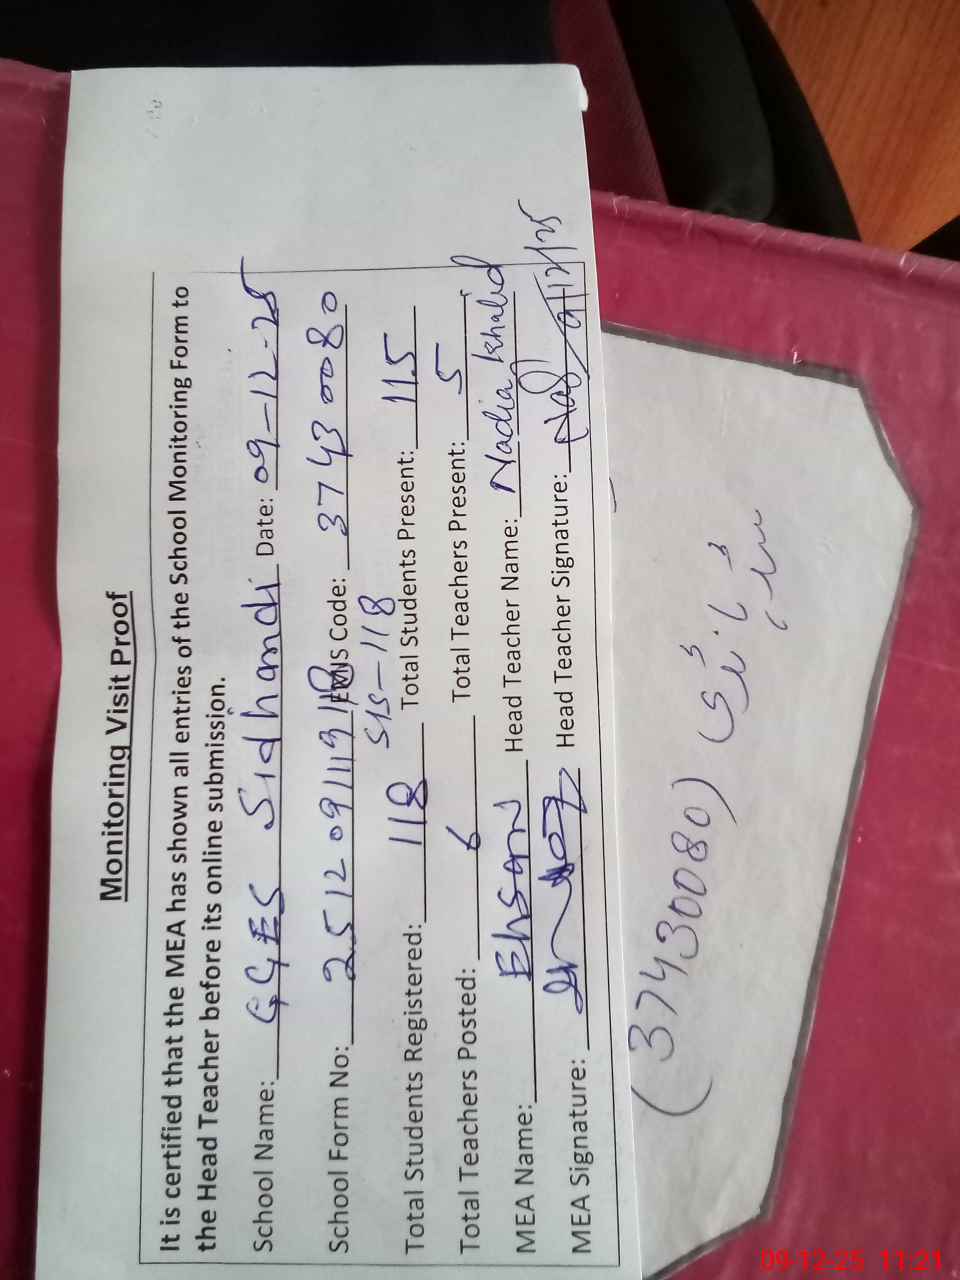 Monitoring Visit Proof
It is certified that the MEA has shown all entries of the School Monitoring Form to
the Head Teacher before its online submission.
School Name: GGES Sidhandi Date: 09-12-25
School Form No: EMIS Code: 37430080
SIS-118
Total Students Registered: 118 Total Students Present: 115
Total Teachers Posted: 6 Total Teachers Present: 5
MEA Name: Ehsan Head Teacher Name: Nadia Khalid
MEA Signature: Head Teacher Signature: 9/12/25
(37430080)
09-12-25 11:21